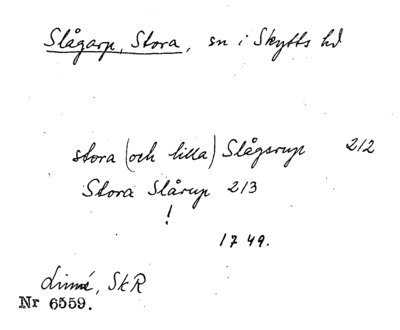 Slågarp, Stora, sn i Skytts hd
stora (och lilla) Slågsrup 2/2
Stora Slårup 2/3
!
1749.
Linné, SkR
Nr 6559.